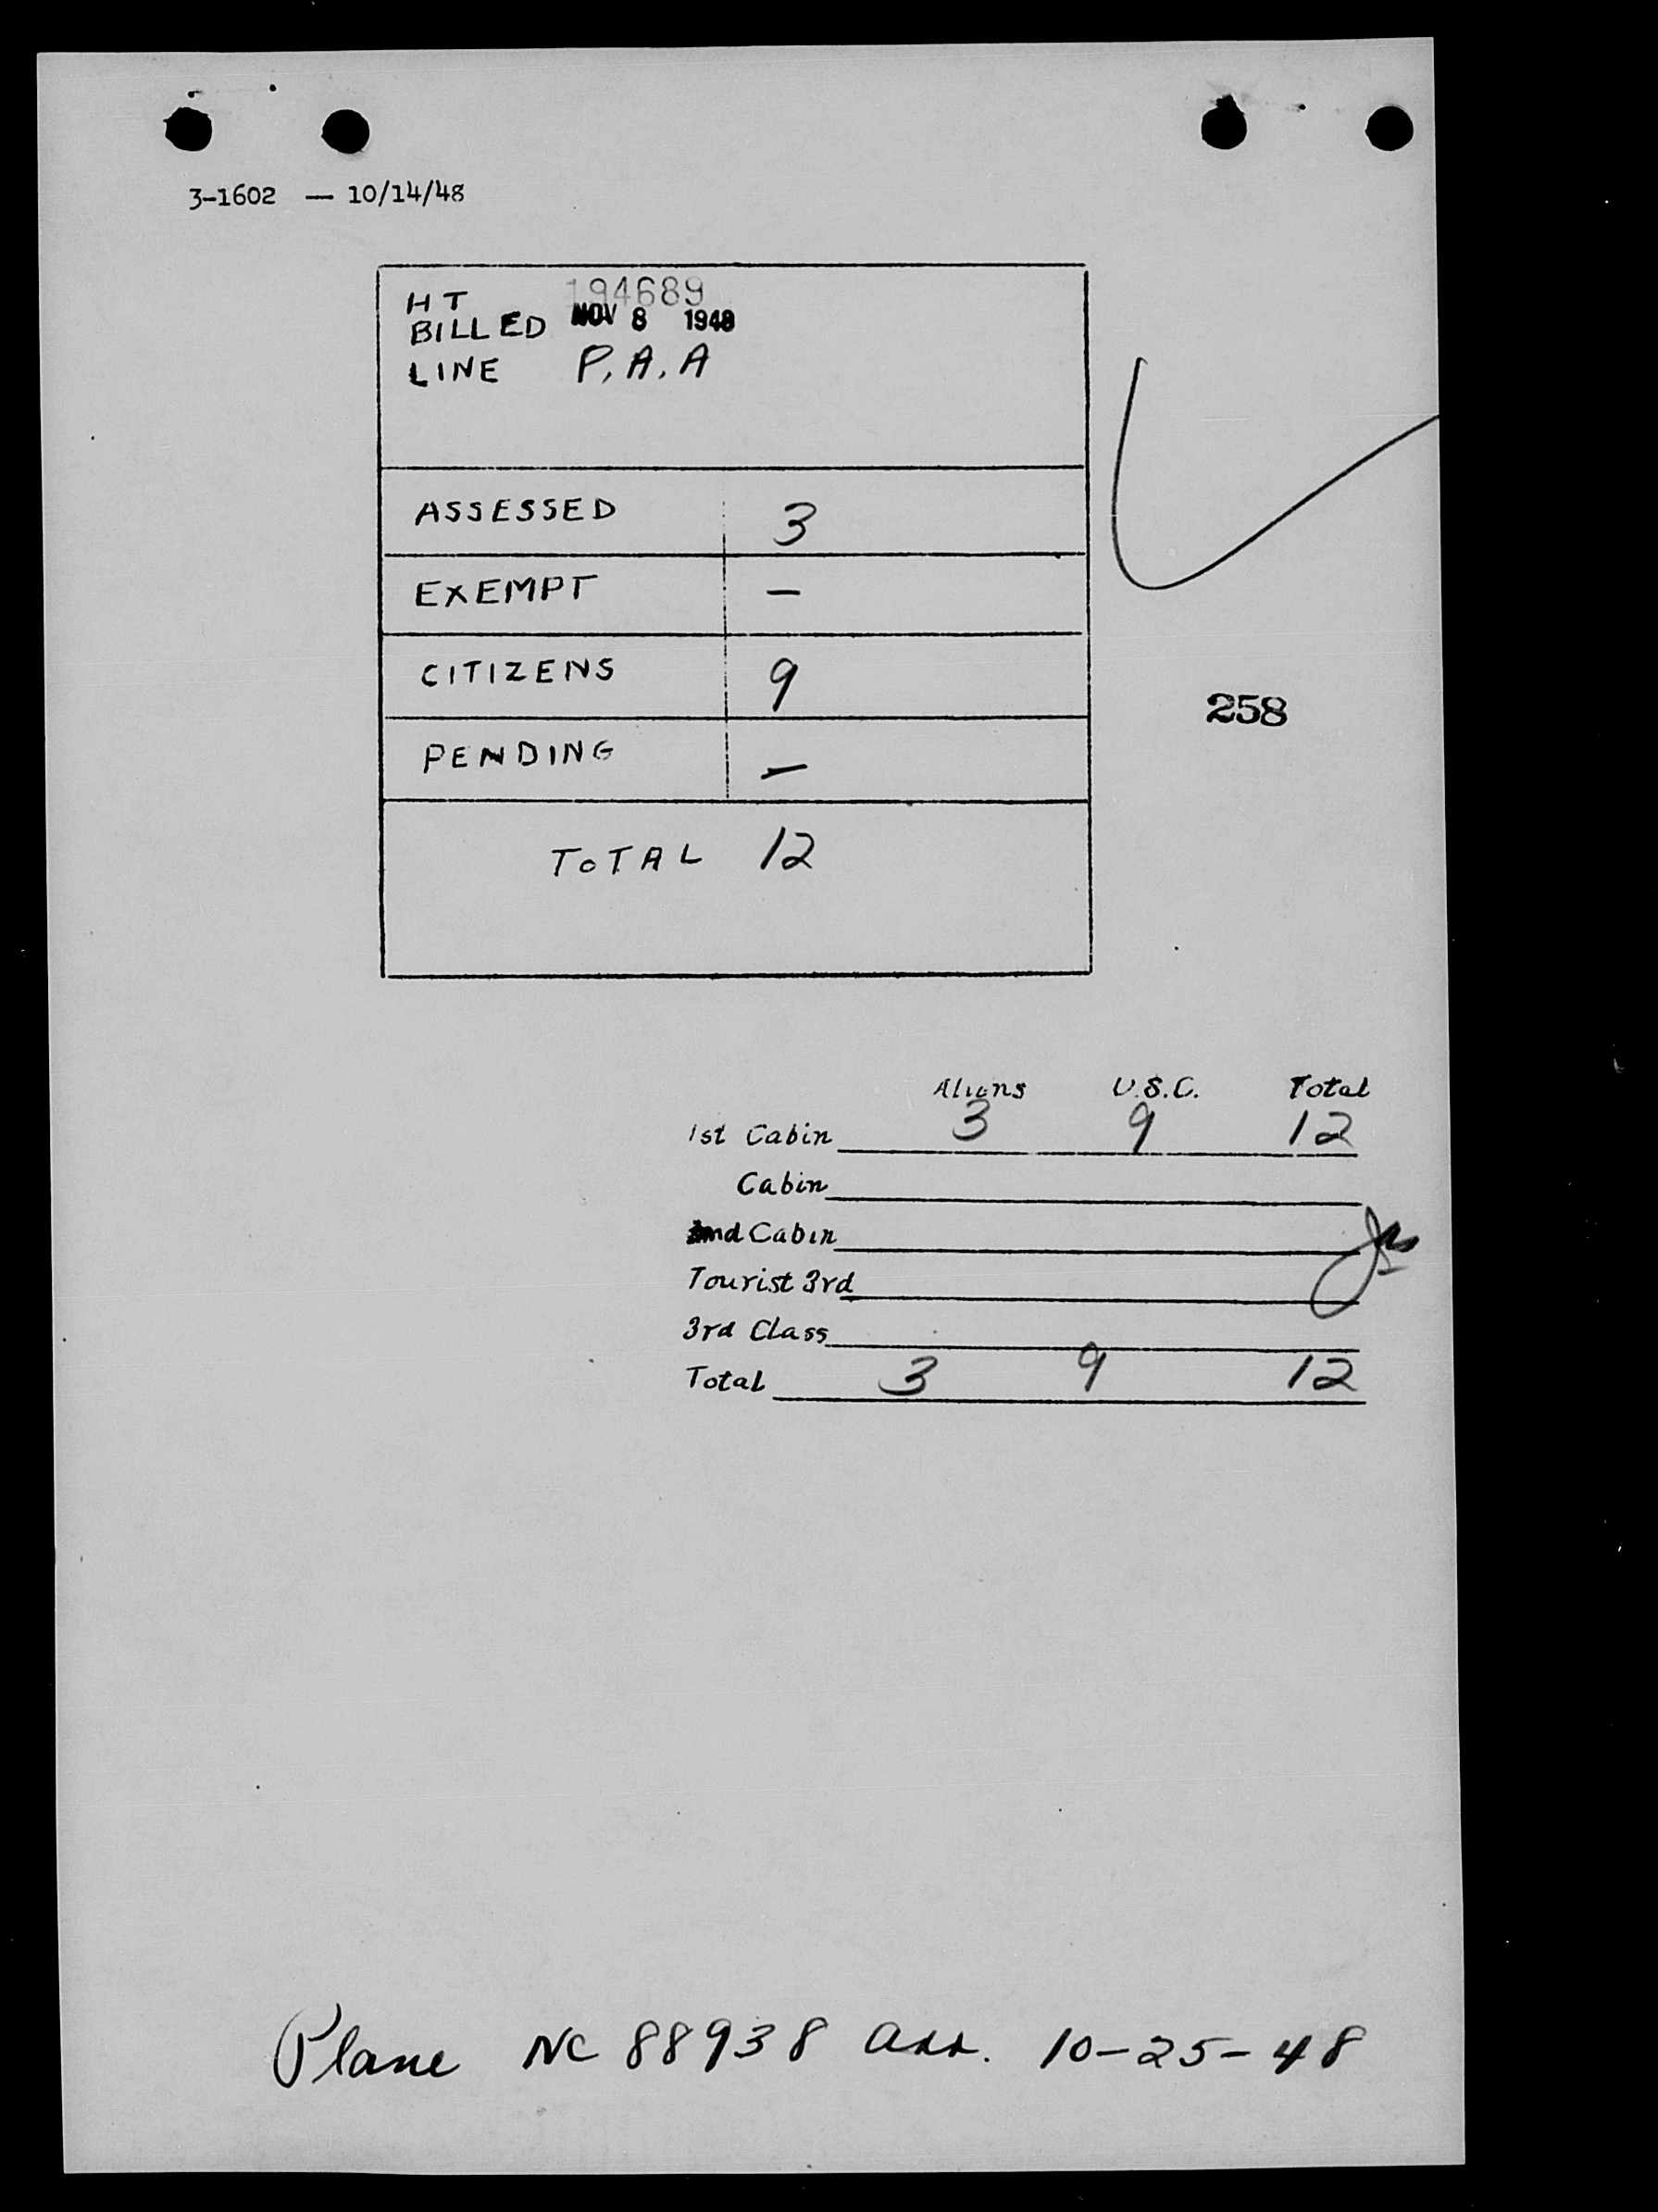 3-1602 — 10/14/48
HT 194689
BILLED NOV 8 1948
LINE P.A.A
ASSESSED 3
EXEMPT —
CITIZENS 9
258
PENDING —
TOTAL 12
Aliens U.S.C. Total
1st Cabin 3 9 12
Cabin
2nd Cabin
Tourist 3rd
3rd Class
Total 3 9 12
Plane NC 88938 arr. 10-25-48